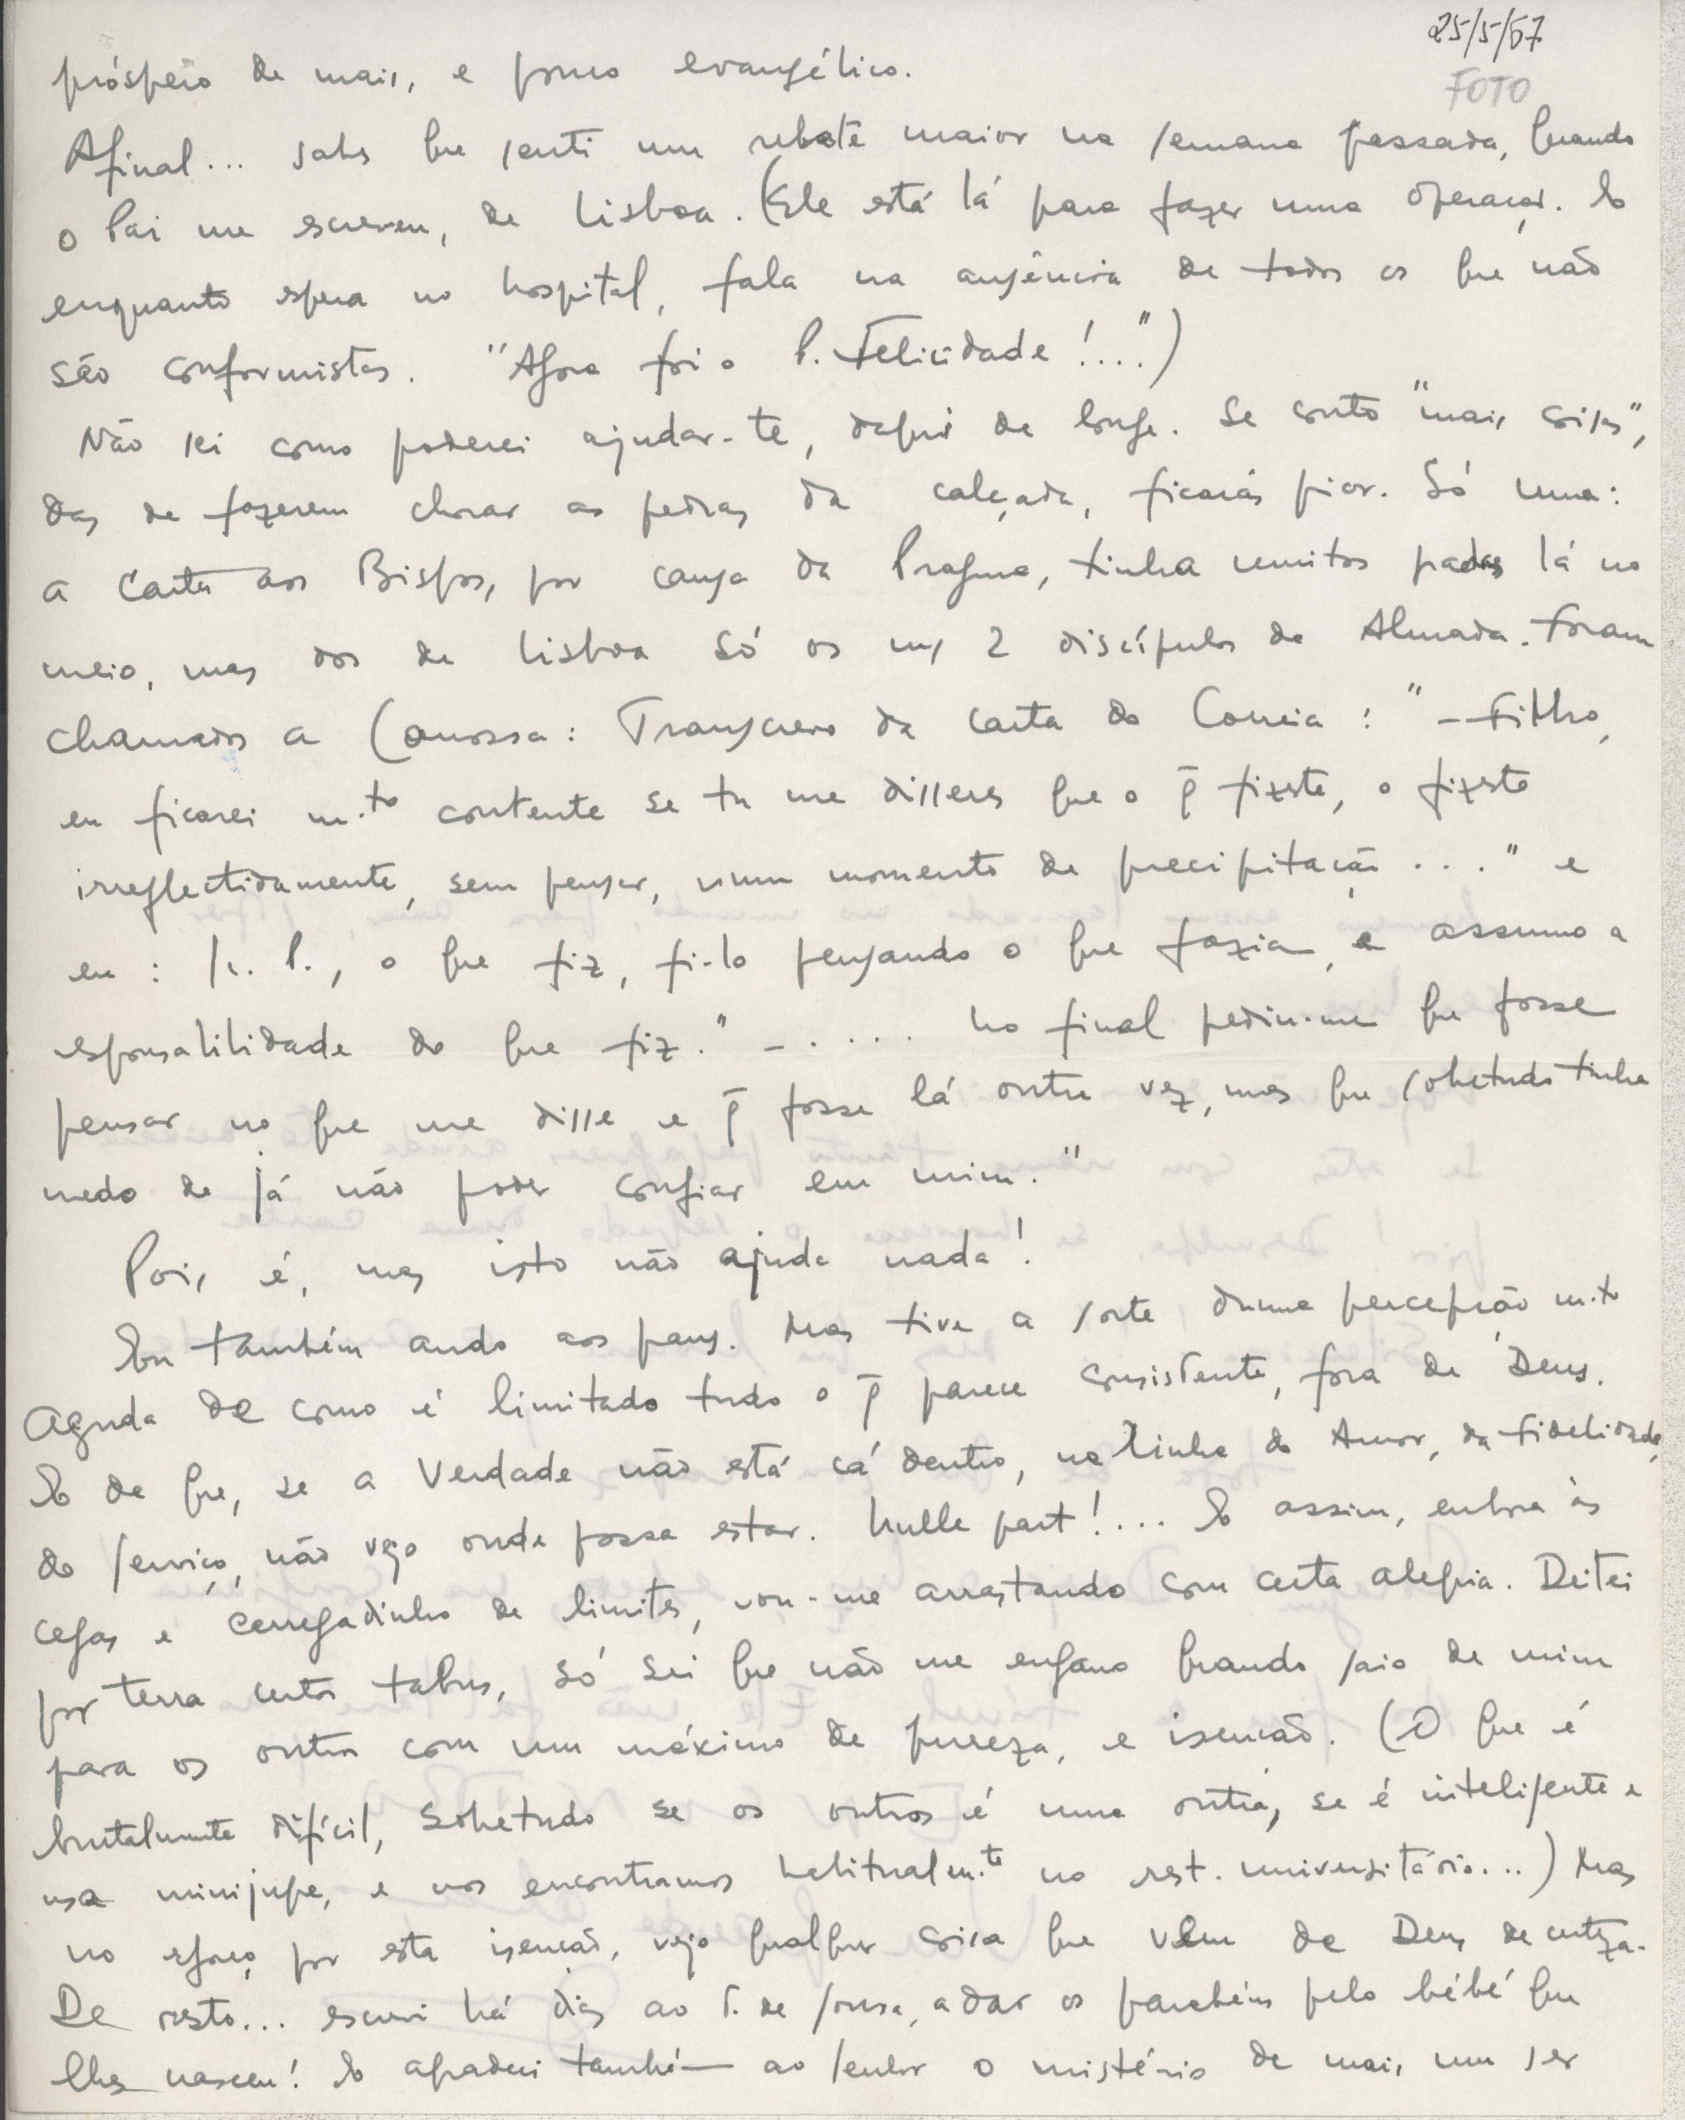 25/5/67
FOTO
próspero de mais, e pouco evangélico.
Afinal... sabes que senti um rebate maior na semana passada, quando
o Pai me escreveu, de Lisboa. (Ele está lá para fazer uma operação. E
enquanto espera no hospital, fala na ausência de todos os que não
são conformistas. "Agora foi o P. Felicidade!...")
Não sei como poderei ajudar-te, daqui de longe. Se conto "mais coisas",
das de fazerem chorar as pedras da calçada, ficarás pior. Só uma:
a Carta aos Bispos, por causa da Pragma, tinha muitos padres lá no
meio, mas dos de Lisboa só os ms 2 discípulos de Almada. Foram
chamados a Canossa: Transcrevo da carta do Correia: "- Filho,
eu ficarei m.to contente se tu me disseres que o q̄ fizeste, o fizeste
irreflectidamente, sem pensar, num momento de precipitação..." e
eu: P., o que fiz, fi-lo pensando o que fazia, e assumo a
responsabilidade do que fiz." - .... No final pediu-me que fosse
pensar no que me disse e q̄ fosse lá outra vez, mas que sobretudo tinha
medo de já não poder confiar em mim."
Pois é, mas isto não ajuda nada!
Eu também ando aos paus. Mas tive a sorte duma percepção m.to
aguda de como é limitado tudo o q̄ parece consistente, fora de Deus.
E de que, se a Verdade não está cá dentro, na linha do Amor, da fidelidade,
do serviço, não vejo onde possa estar. Nulle part!... E assim, embora às
cegas e carregadinho de limites, vou-me arrastando com certa alegria. Deitei
por terra certos tabus, só sei que não me engano quando saio de mim
para os outros com um máximo de pureza, e isenção. (O que é
brutalmente difícil, sobretudo se os outros é uma outra, se é inteligente e
usa minijupe, e nos encontramos habitualm.te no rest. universitário...) Mas
no esforço por esta isenção, vejo qualquer coisa que vem de Deus de certeza.
De resto... escrevi há dias ao T. de Sousa, a dar os parabéns pelo bébé que
lhes nasceu! E agradeci também ao Senhor o mistério de mais um ser